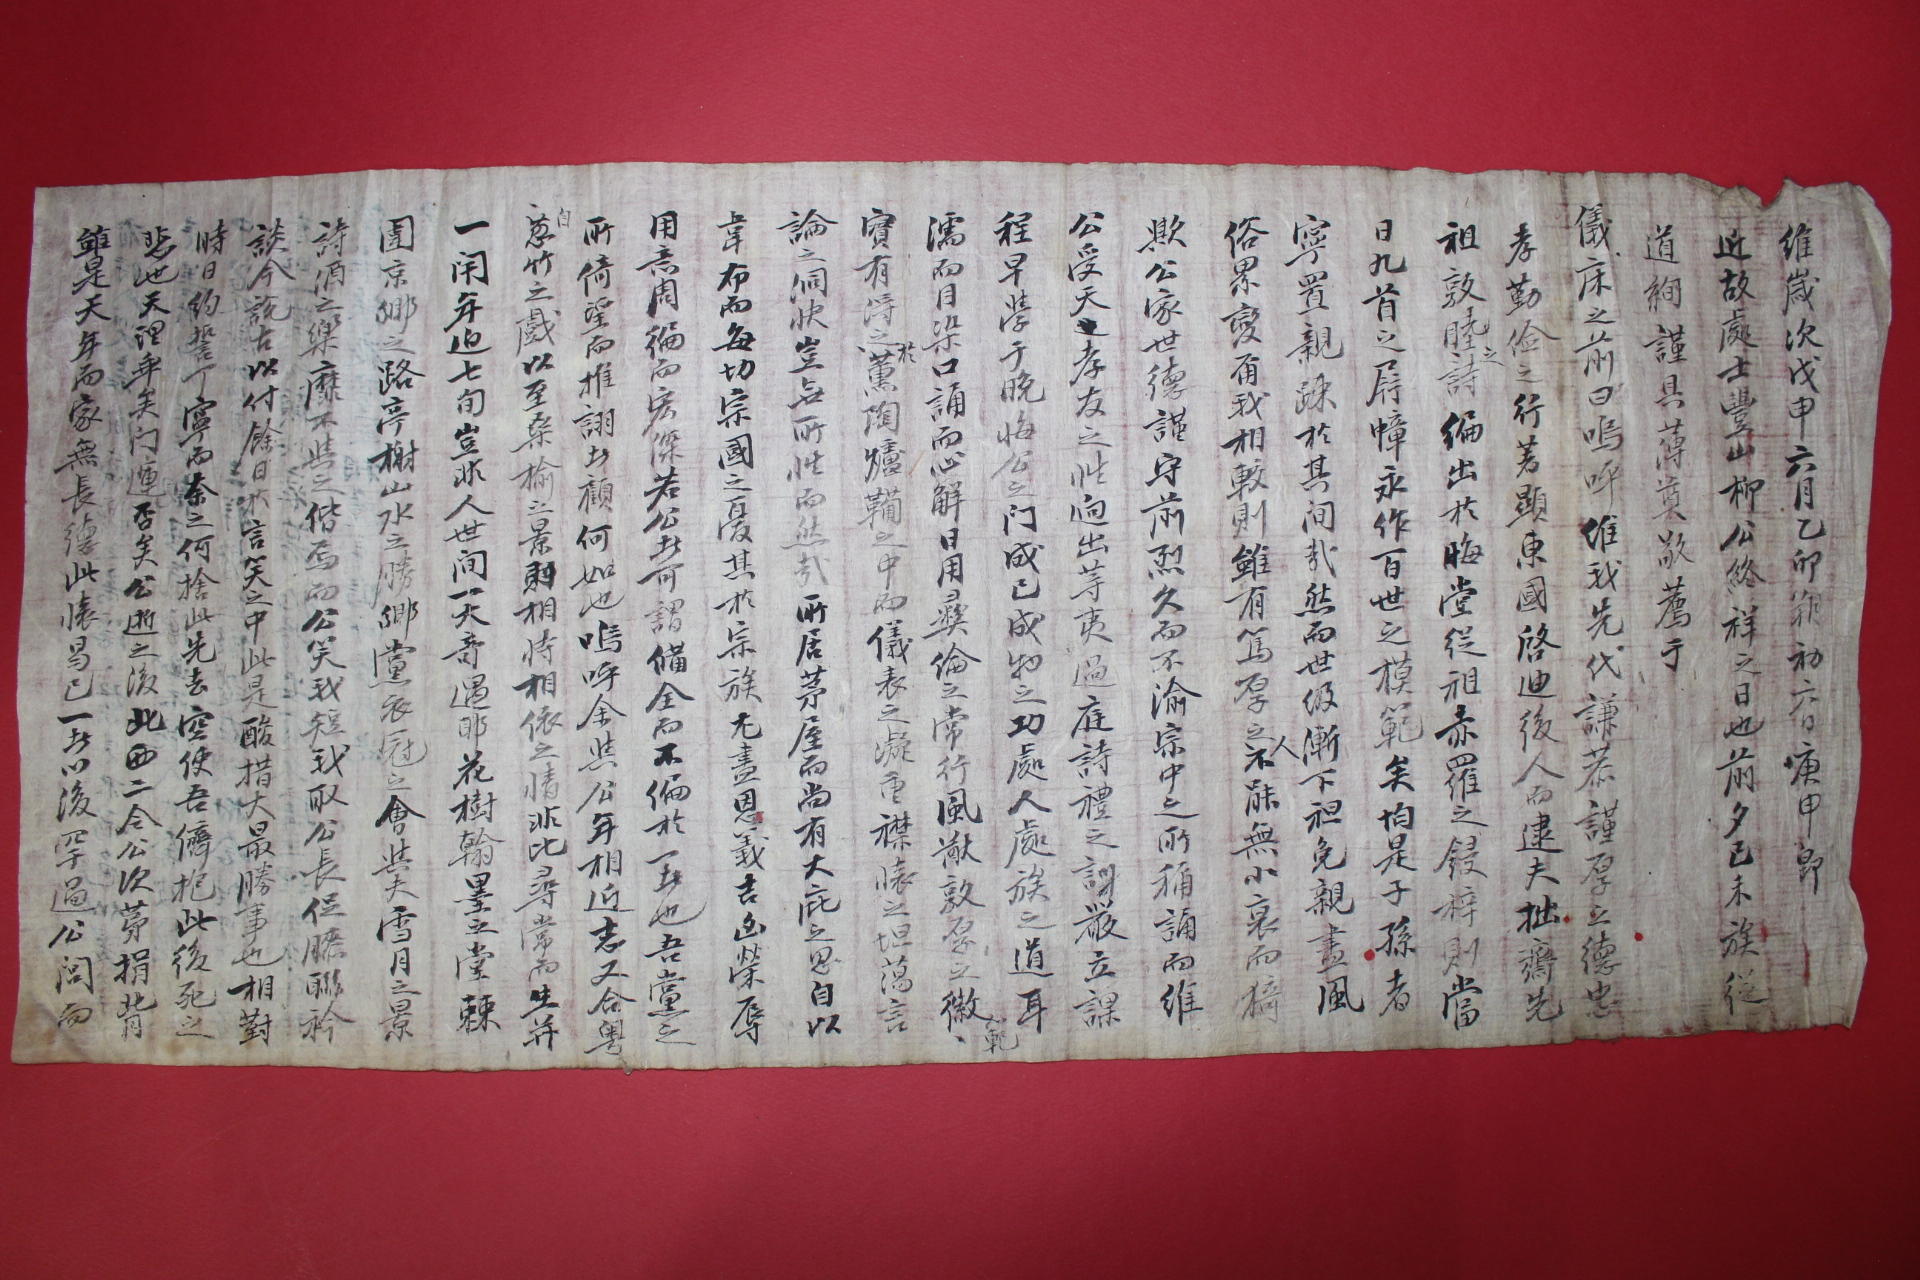 維歲次戊申六月乙卯朔初六日庚申卽
近故處士豐山柳公終祥之日也前夕己未族從
道絢謹具薄奠敬薦于
儀床之前曰嗚呼維我先代謙恭謹厚立德忠
孝勤儉之行著顯東國啓迪後人而逮夫拙齋先
祖敦睦之詩編出於晦堂從祖赤羅之鋟梓則當
日九首之屛幛永作百世之模範矣均是子孫者
寧置親疎於其間哉然而世級漸下袒免親盡風
俗累變爾我相較則雖有篤厚之人不能無小衰而猗
歟公家世德謹守前烈久而不渝宗中之所稱誦而維
公受天之孝友之性逈出等夷過庭詩禮之訓嚴立課
程早學于晩悔公之门成己成物之功處人處族之道耳
濡而目染口誦而心解日用彛倫之常行風猷敦厚之徽範
實有得於之薰陶爐鞴之中而儀表之凝重襟懷之坦蕩言
論之洞快豈無所性而然哉所居茅屋而尚有大庇之思自以
韋布而每切宗國之憂其於宗族尤盡恩義吉凶榮辱
用意周徧而宏傑若公者可謂備全而不偏於一者也吾黨之
所倚望而推詡者顧何如也嗚呼余與公年相近志又合粤
自葱竹之戲以至桑榆之景則相恃相依之情非比尋常而生并
一閈年迫七旬豈非人世间一大奇遇耶花樹翰墨之堂棘
圍京鄕之路亭榭山水之勝鄕黨衣冠之會與夫雪月之景
詩酒之樂靡不與之偕焉而公笑我短我取公長促膝聯衿
談今說古以付餘日於言笑之中此是酸措大最勝事也相對
時日約誓丁寧而奈之何捨此先去空使吾儕抱此後死之
悲也天理舛矣门運否矣公逝之後此西二令公次第捐背
雖是天年而家無長德此懷曷已一者以後罕過公閭而